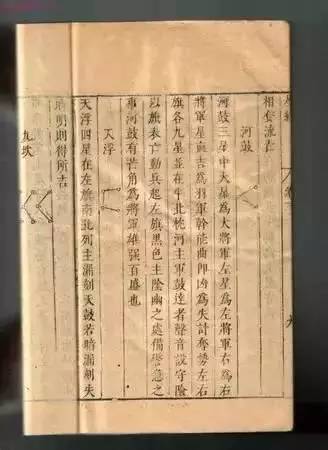 相去流吉
河鼓
河鼓三星中大星為大將軍左星為左將軍右為右
將軍星直吉為將軍幹能曲即凶為失計奪勢左右
旗各九星並在牛北枕河主軍鼓達者聲音設守險
以旗表亡動兵起左旗黑色主陰幽之處備警急之
事河鼓有芒角為將軍雄强百盛也
天浮
天浮四星在左旗南北列主漏刻天鼓若暗漏刻失
明則得所吉
九坎